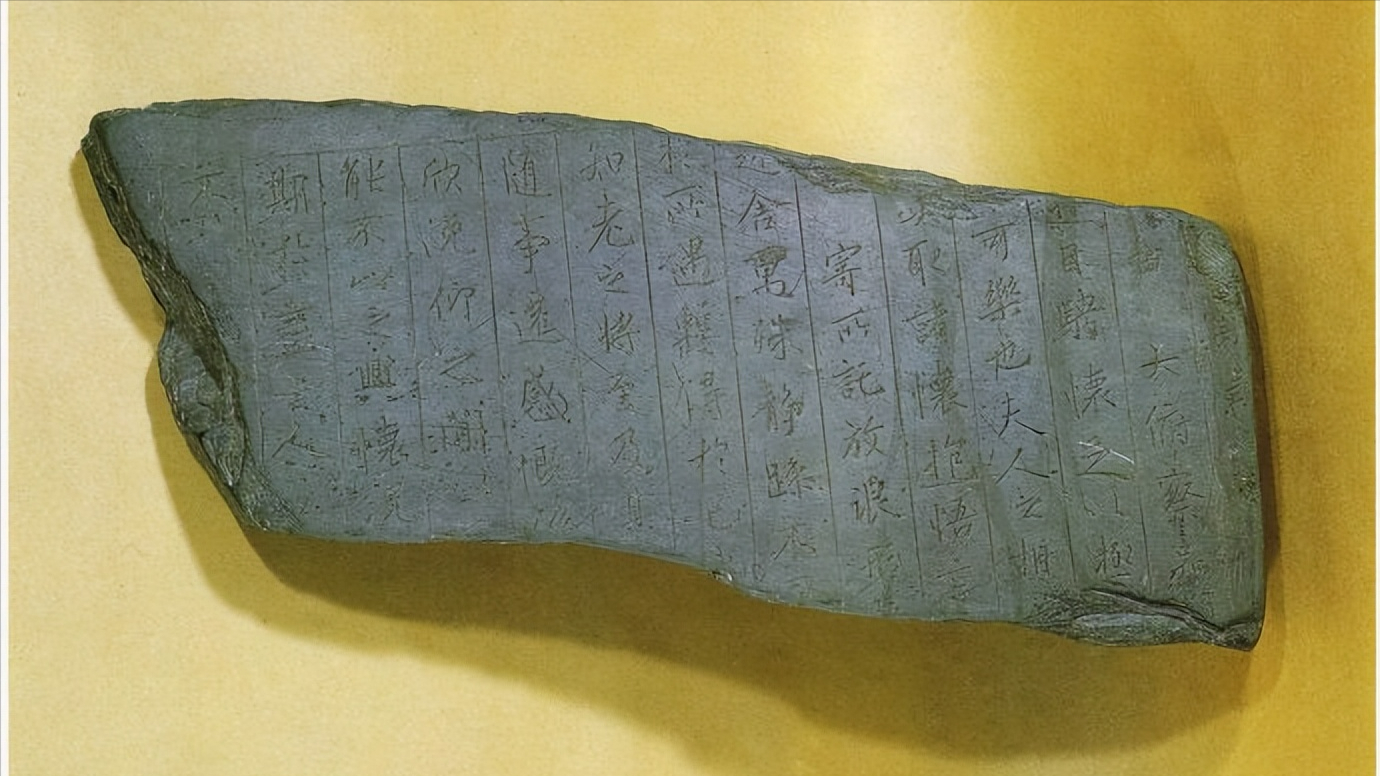 大俯察品
目騁懷足以極
可樂也夫人之相
或取諸懷抱悟言
寄所託放浪形
舍萬殊靜躁不
於所遇蹔得於己
知老之將至及其
隨事遷感慨係
欣俛仰之閒
能不以之興懷況
期於盡古人
不